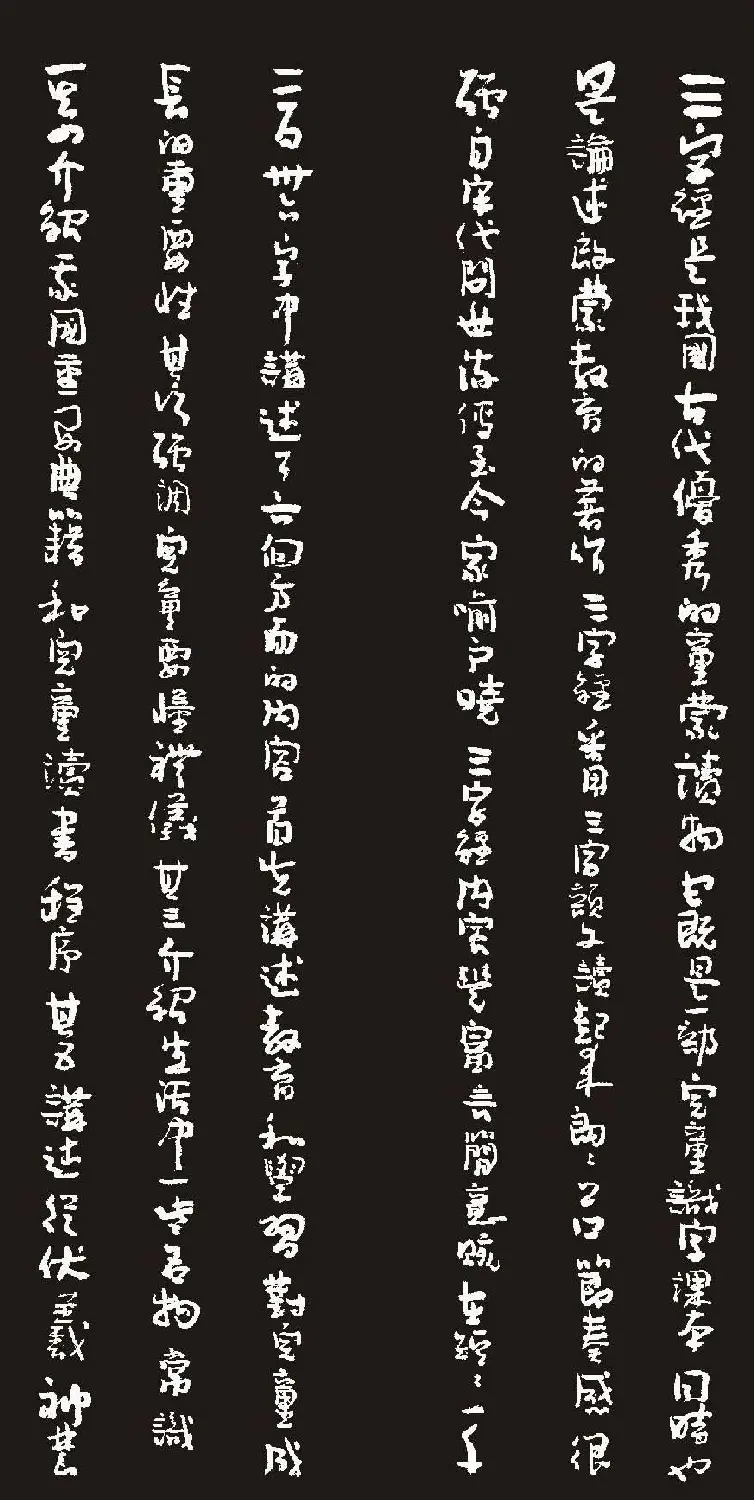 三字經是我國古代優秀的童蒙讀物它既是一部兒童識字課本同時也
是論述啟蒙教育的著作三字經采用三字韻文讀起來朗〻上口節奏感很
強自宋代問世流傳至今家喻戶曉三字經內容豐富言簡意賅在短〻一千
二百卅六字中講述了六個方面的內容首先講述教育和學習對兒童成
長的重要性其次強調兒童要懂禮儀其三介紹生活中一些名物常識
其四介紹我國重要典籍和兒童讀書程序其五講述從伏羲神農